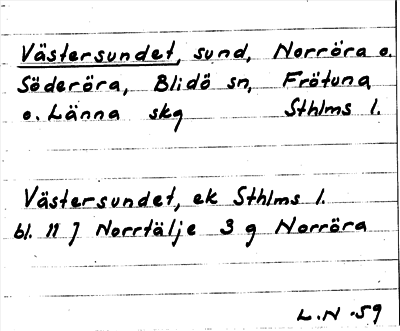 Västersundet, sund, Norröra o.
Söderöra, Blidö sn, Frötuna
o. Länna skg Sthlms l.
Västersundet, ek Sthlms l.
bl. 11 J Norrtälje 3 g Norröra
L.N -59